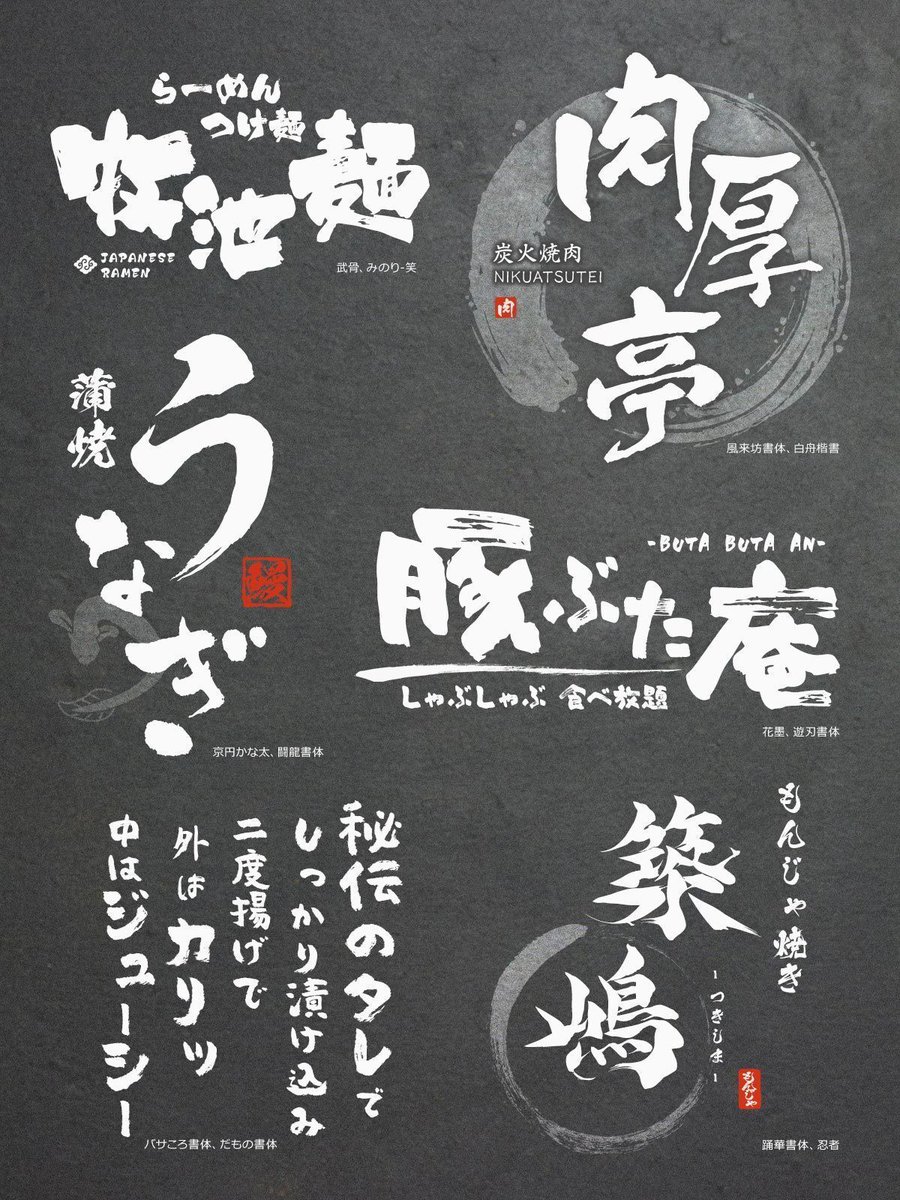 らーめん
つけ麺
牧池麺
JAPANESE
RAMEN
武骨、みのり-笑
肉厚亭
炭火焼肉
NIKUATSUTEI
肉
風来坊書体、白舟楷書
蒲焼
うなぎ
京円かな太、闘龍書体
-BUTA BUTA AN-
豚ぶた庵
しゃぶしゃぶ 食べ放題
花墨、遊刃書体
秘伝のタレで
しっかり漬け込み
二度揚げで
外はカリッ
中はジューシー
バサころ書体、だもの書体
もんじゃ焼き
築嶋
-つきしま-
もんじゃ
踊華書体、忍者